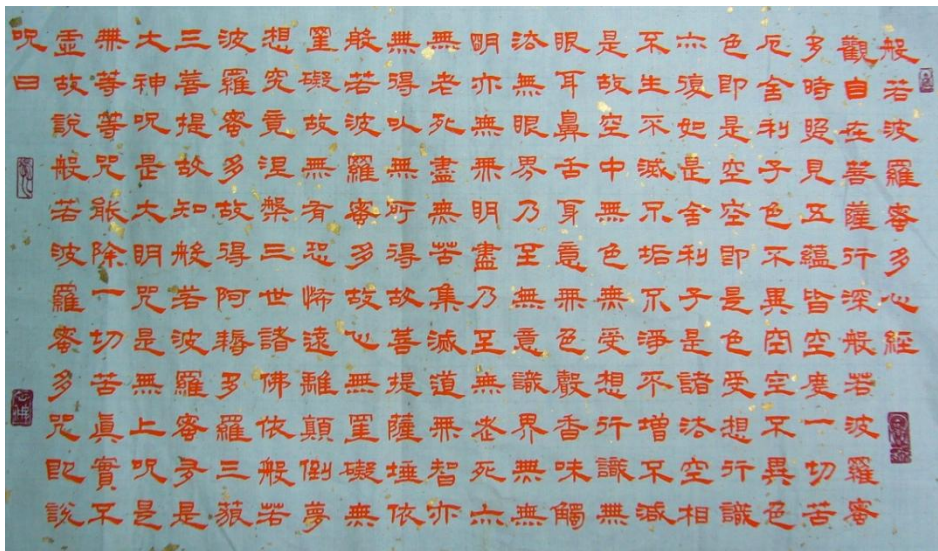 般若波羅蜜多心經
觀自在菩薩行深般若波羅蜜
多時照見五蘊皆空度一切苦
厄舍利子色不異空空不異色
色即是空空即是色受想行識
亦復如是舍利子是諸法空相
不生不滅不垢不淨不增不減
是故空中無色無受想行識無
眼耳鼻舌身意無色聲香味觸
法無眼界乃至無意識界無無
明亦無無明盡乃至無老死亦
無老死盡無苦集滅道無智亦
無得以無所得故菩提薩埵依
般若波羅蜜多故心無罣礙無
罣礙故無有恐怖遠離顛倒夢
想究竟涅槃三世諸佛依般若
波羅蜜多故得阿耨多羅三藐
三菩提故知般若波羅蜜多是
大神呪是大明咒是無上呪是
無等等咒能除一切苦眞實不
虛故說般若波羅蜜多咒即說
呪曰